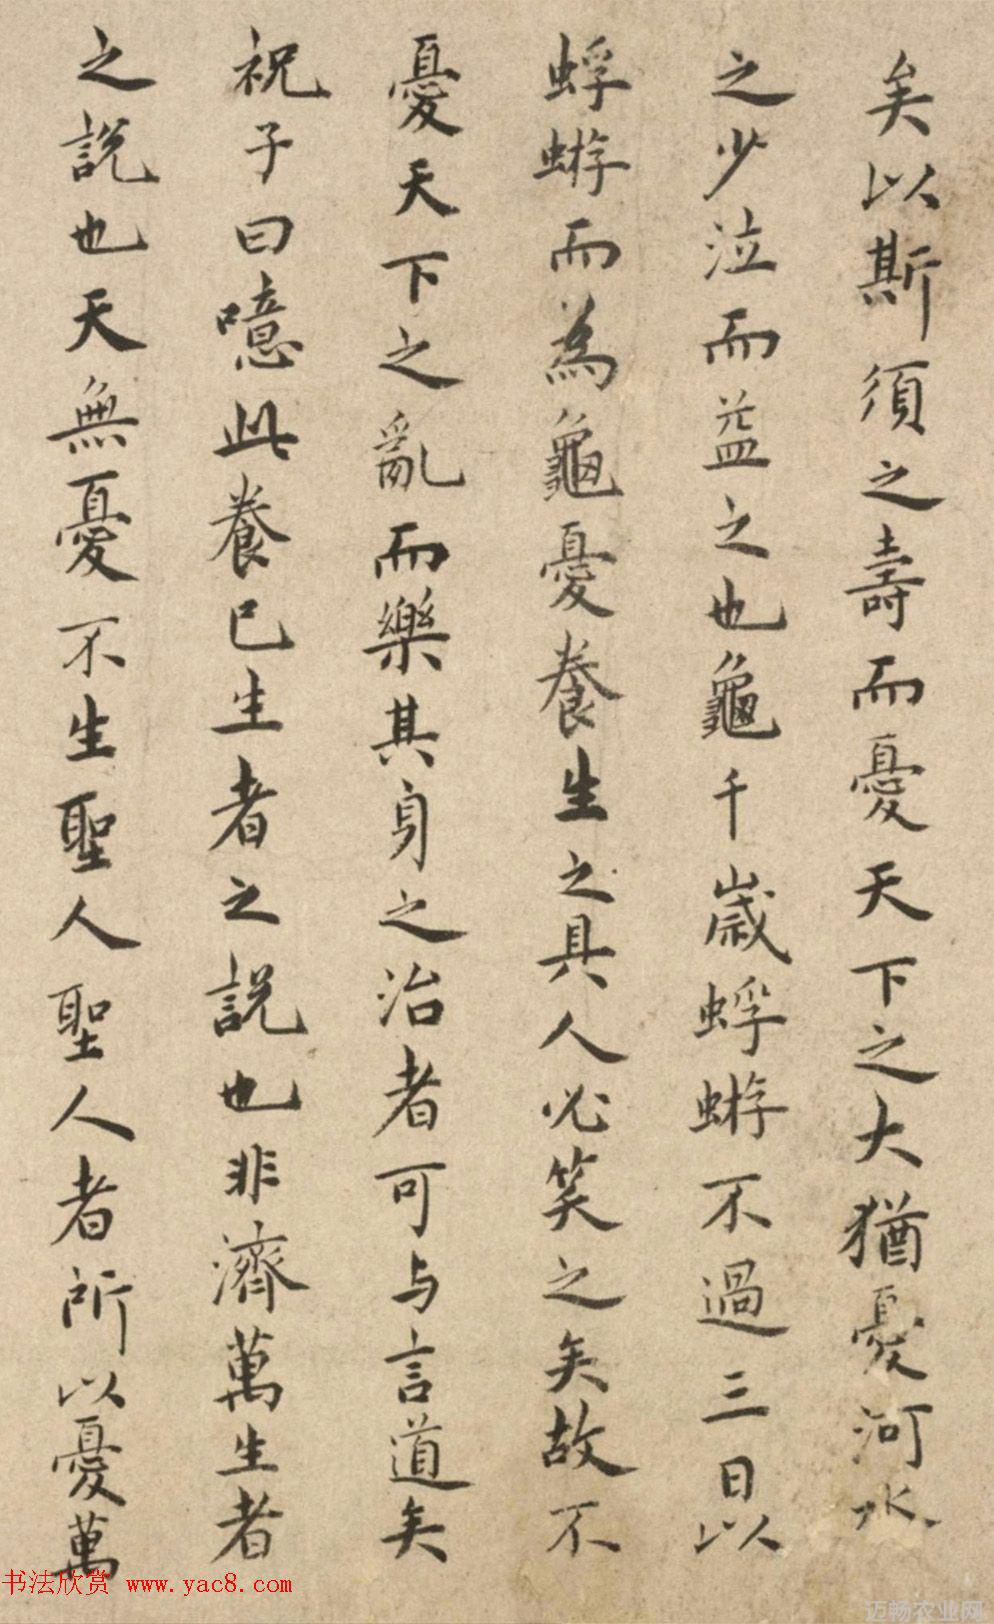 矣以斯須之壽而憂天下之大猶憂河水
之少泣而益之也龜千歲蜉蝣不過三日以
蜉蝣而為龜憂養生之具人必笑之矣故不
憂天下之亂而樂其身之治者可与言道矣
祝子曰噫此養己生者之說也非濟萬生者
之說也天無憂不生聖人聖人者所以憂萬
书法欣赏 www.yac8.com
迈畅农业网